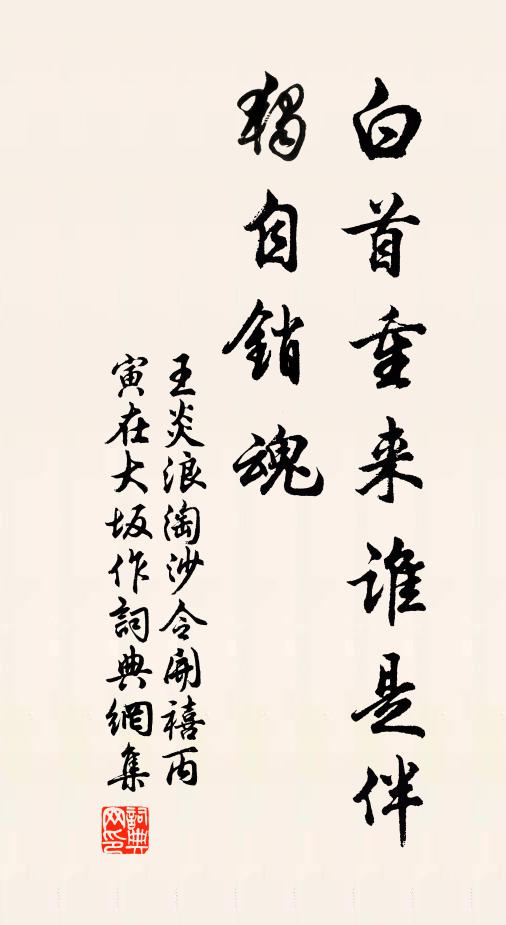 白首重来谁是伴
獨自銷魂
王炎浪淘沙令開禧丙
寅在大坂作詞典網集
詞典网印